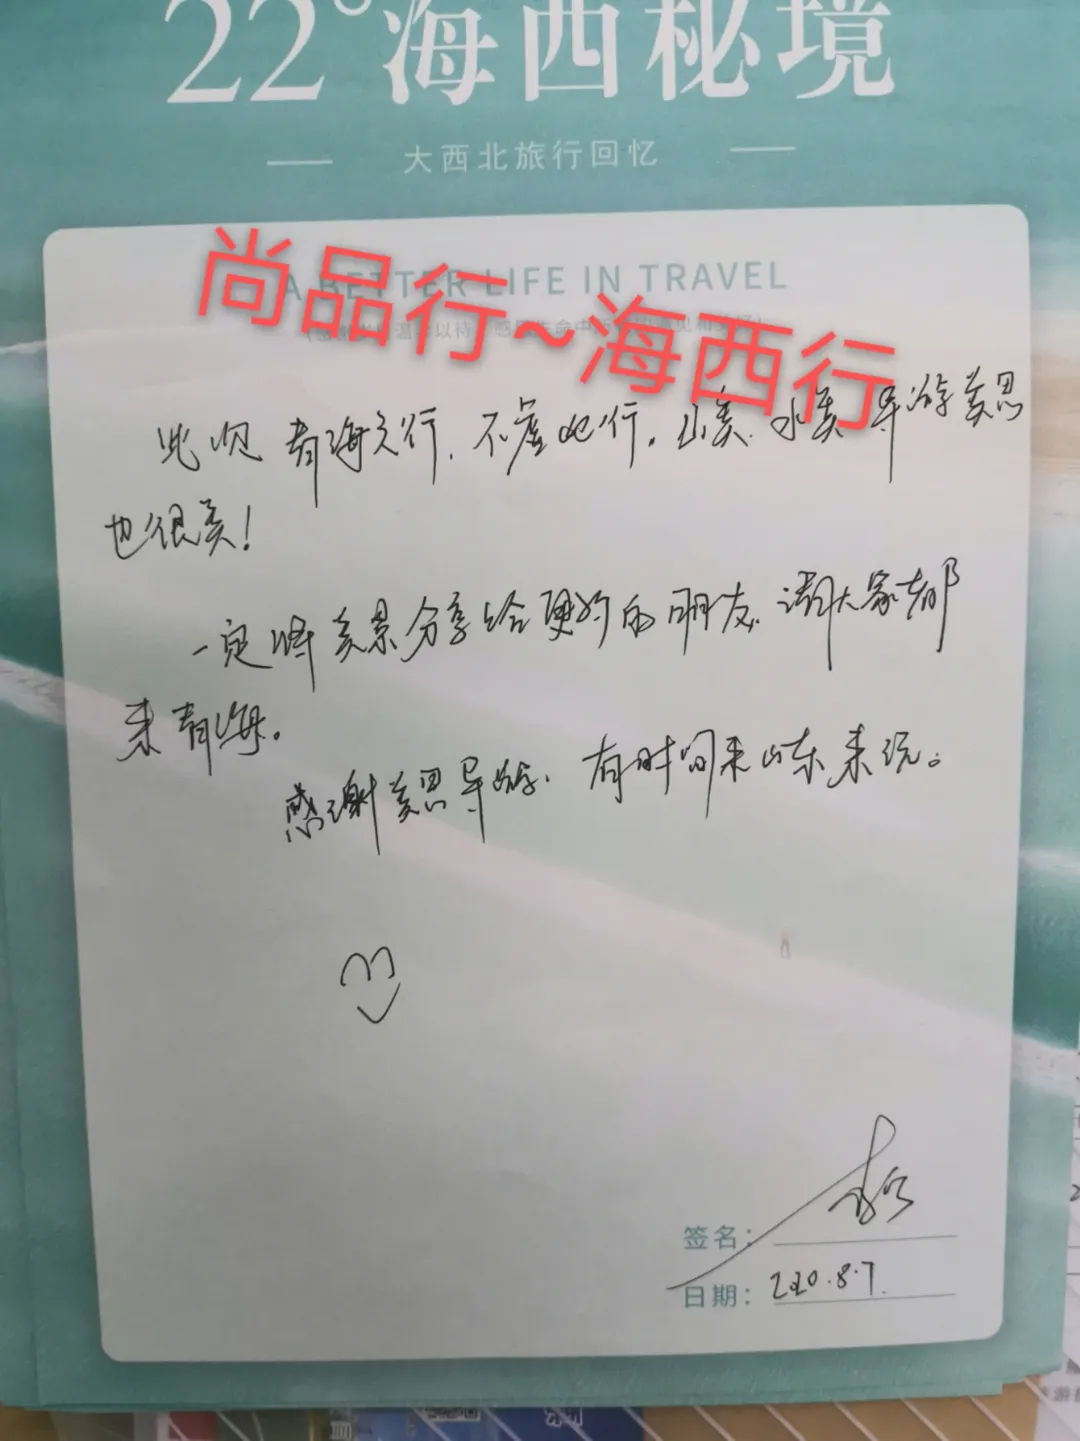 22°海西秘境
大西北旅行回忆
A BETTER LIFE IN TRAVEL
尚品行~海西行
此次青海之行，不虚此行。山美、水美导游美思
也很美！
一定将美景分享给更多的朋友，请大家都
来青海。
感谢美思导游，有时间来山东来玩。
签名：
日期：2020.8.7.